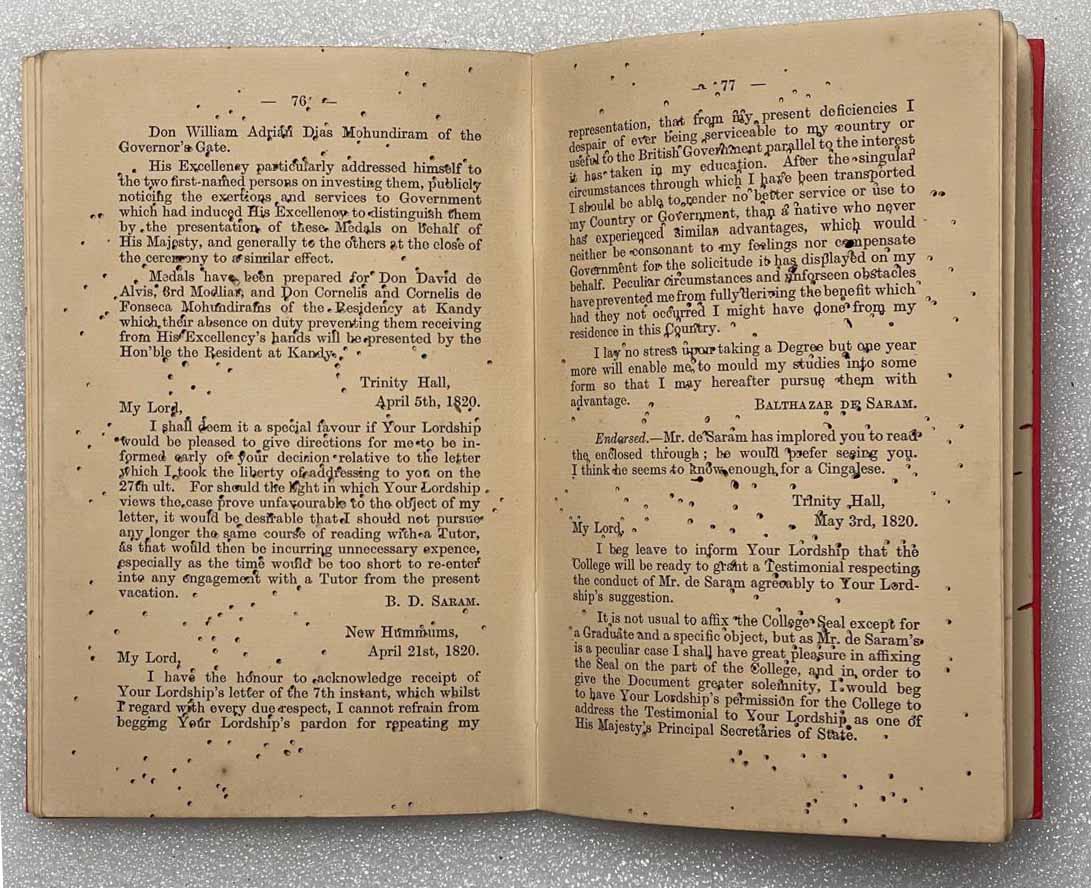 — 76 —
Don William Adrian Dias Mohundiram of the
Governor's Gate.
His Excellency particularly addressed himself to
the two first-named persons on investing them, publicly
noticing the exertions and services to Government
which had induced His Excellency to distinguish them
by the presentation of these Medals on behalf of
His Majesty, and generally to the others at the close of
the ceremony to a similar effect.
Medals have been prepared for Don David de
Alvis, 3rd Modliar, and Don Cornelis and Cornelis de
Fonseca Mohundirams of the Residency at Kandy
which their absence on duty preventing them receiving
from His Excellency's hands will be presented by the
Hon'ble the Resident at Kandy.
Trinity Hall,
April 5th, 1820.
My Lord,
I shall deem it a special favour if Your Lordship
would be pleased to give directions for me to be in-
formed early of your decision relative to the letter
which I took the liberty of addressing to you on the
27th ult. For should the light in which Your Lordship
views the case prove unfavourable to the object of my
letter, it would be desirable that I should not pursue
any longer the same course of reading with a Tutor,
as that would then be incurring unnecessary expence,
especially as the time would be too short to re-enter
into any engagement with a Tutor from the present
vacation.
B. D. SARAM.
New Hummums,
April 21st, 1820.
My Lord,
I have the honour to acknowledge receipt of
Your Lordship's letter of the 7th instant, which whilst
I regard with every due respect, I cannot refrain from
begging Your Lordship's pardon for repeating my
— 77 —
representation, that from my present deficiencies I
despair of ever being serviceable to my country or
useful to the British Government parallel to the interest
it has taken in my education. After the singular
circumstances through which I have been transported
I should be able to render no better service or use to
my Country or Government, than a native who never
has experienced similar advantages, which would
neither be consonant to my feelings nor compensate
Government for the solicitude it has displayed on my
behalf. Peculiar circumstances and unforseen obstacles
have prevented me from fully deriving the benefit which
had they not occurred I might have done from my
residence in this Country.
I lay no stress upon taking a Degree but one year
more will enable me to mould my studies into some
form so that I may hereafter pursue them with
advantage.
BALTHAZAR DE SARAM.
Endorsed.—Mr. de Saram has implored you to read
the enclosed through; he would prefer seeing you.
I think he seems to know enough for a Cingalese.
Trinity Hall,
May 3rd, 1820.
My Lord,
I beg leave to inform Your Lordship that the
College will be ready to grant a Testimonial respecting
the conduct of Mr. de Saram agreeably to Your Lord-
ship's suggestion.
It is not usual to affix the College Seal except for
a Graduate and a specific object, but as Mr. de Saram's
is a peculiar case I shall have great pleasure in affixing
the Seal on the part of the College, and in order to
give the Document greater solemnity, I would beg
to have Your Lordship's permission for the College to
address the Testimonial to Your Lordship as one of
His Majesty's Principal Secretaries of State.